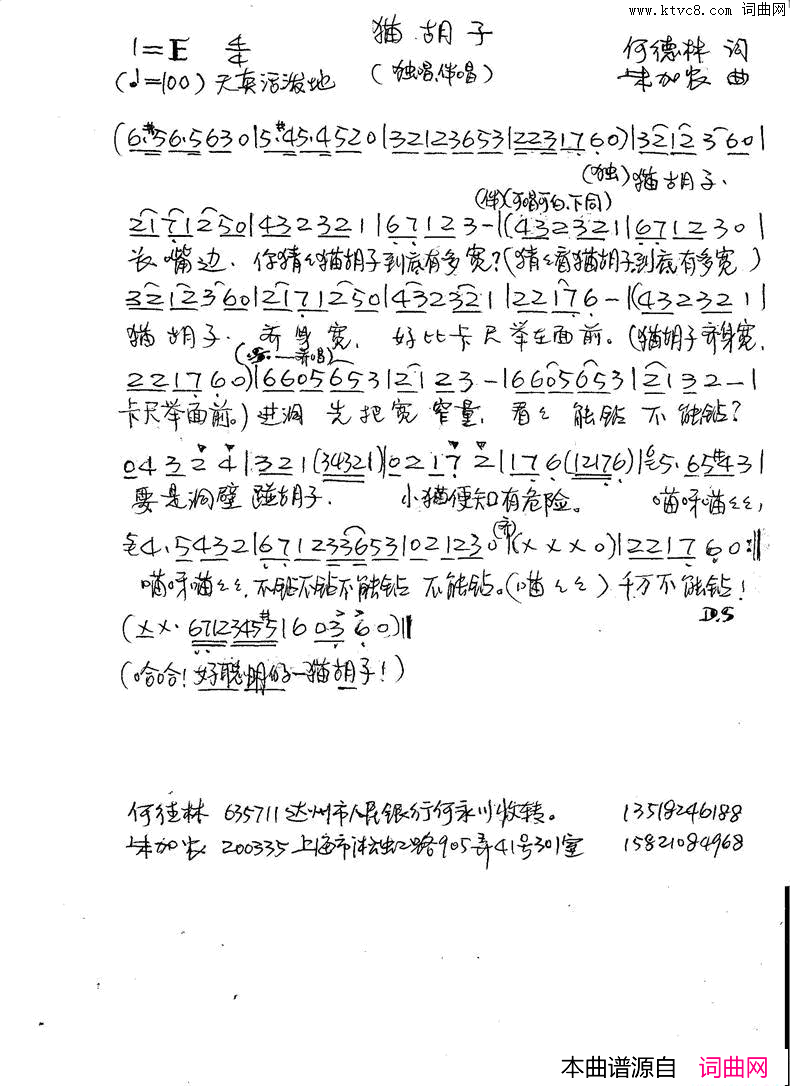 www.ktvc8.com 词曲网
猫胡子
1=E 4/4
何德林 词
(♩=100) 天真活泼地
(独唱、伴唱)
朱加农 曲
(6·#56·5630|5·#45·4520|32123653|2231760)|3212360|
(独) 猫胡子、
(伴)(可唱可白、下同)
2171250|432321|67123-|(432321|671230|
长嘴边、你猜々猫胡子到底有多宽?(猜々看猫胡子到底有多宽)
3212360|2171250|432321|22176-|(432321|
猫胡子、齐身宽、好比卡尺举在面前。(猫胡子齐身宽、
齐唱
221760)|6605653|2123-|6605653|2132-|
卡尺举面前。)进洞先把宽窄量,看々能钻不能钻?
04324|321(34321)|02172|176(12176)|5·65#43|
要是洞壁碰胡子、小猫便知有危险。喵呀喵々々,
4·5432|671233653|021230|(XXX0)|221760:||
(齐)
喵呀喵々々,不钻不钻不能钻不能钻。(喵々々)千万不能钻!
D.S
(XX·67123455|60360)||
(哈哈!好聪明的一猫胡子!)
何德林 635711 达州市人民银行何永川收转。 13518246188
朱加农 200335 上海市淞虹路905弄41号301室 15821084968
本曲谱源自 词曲网